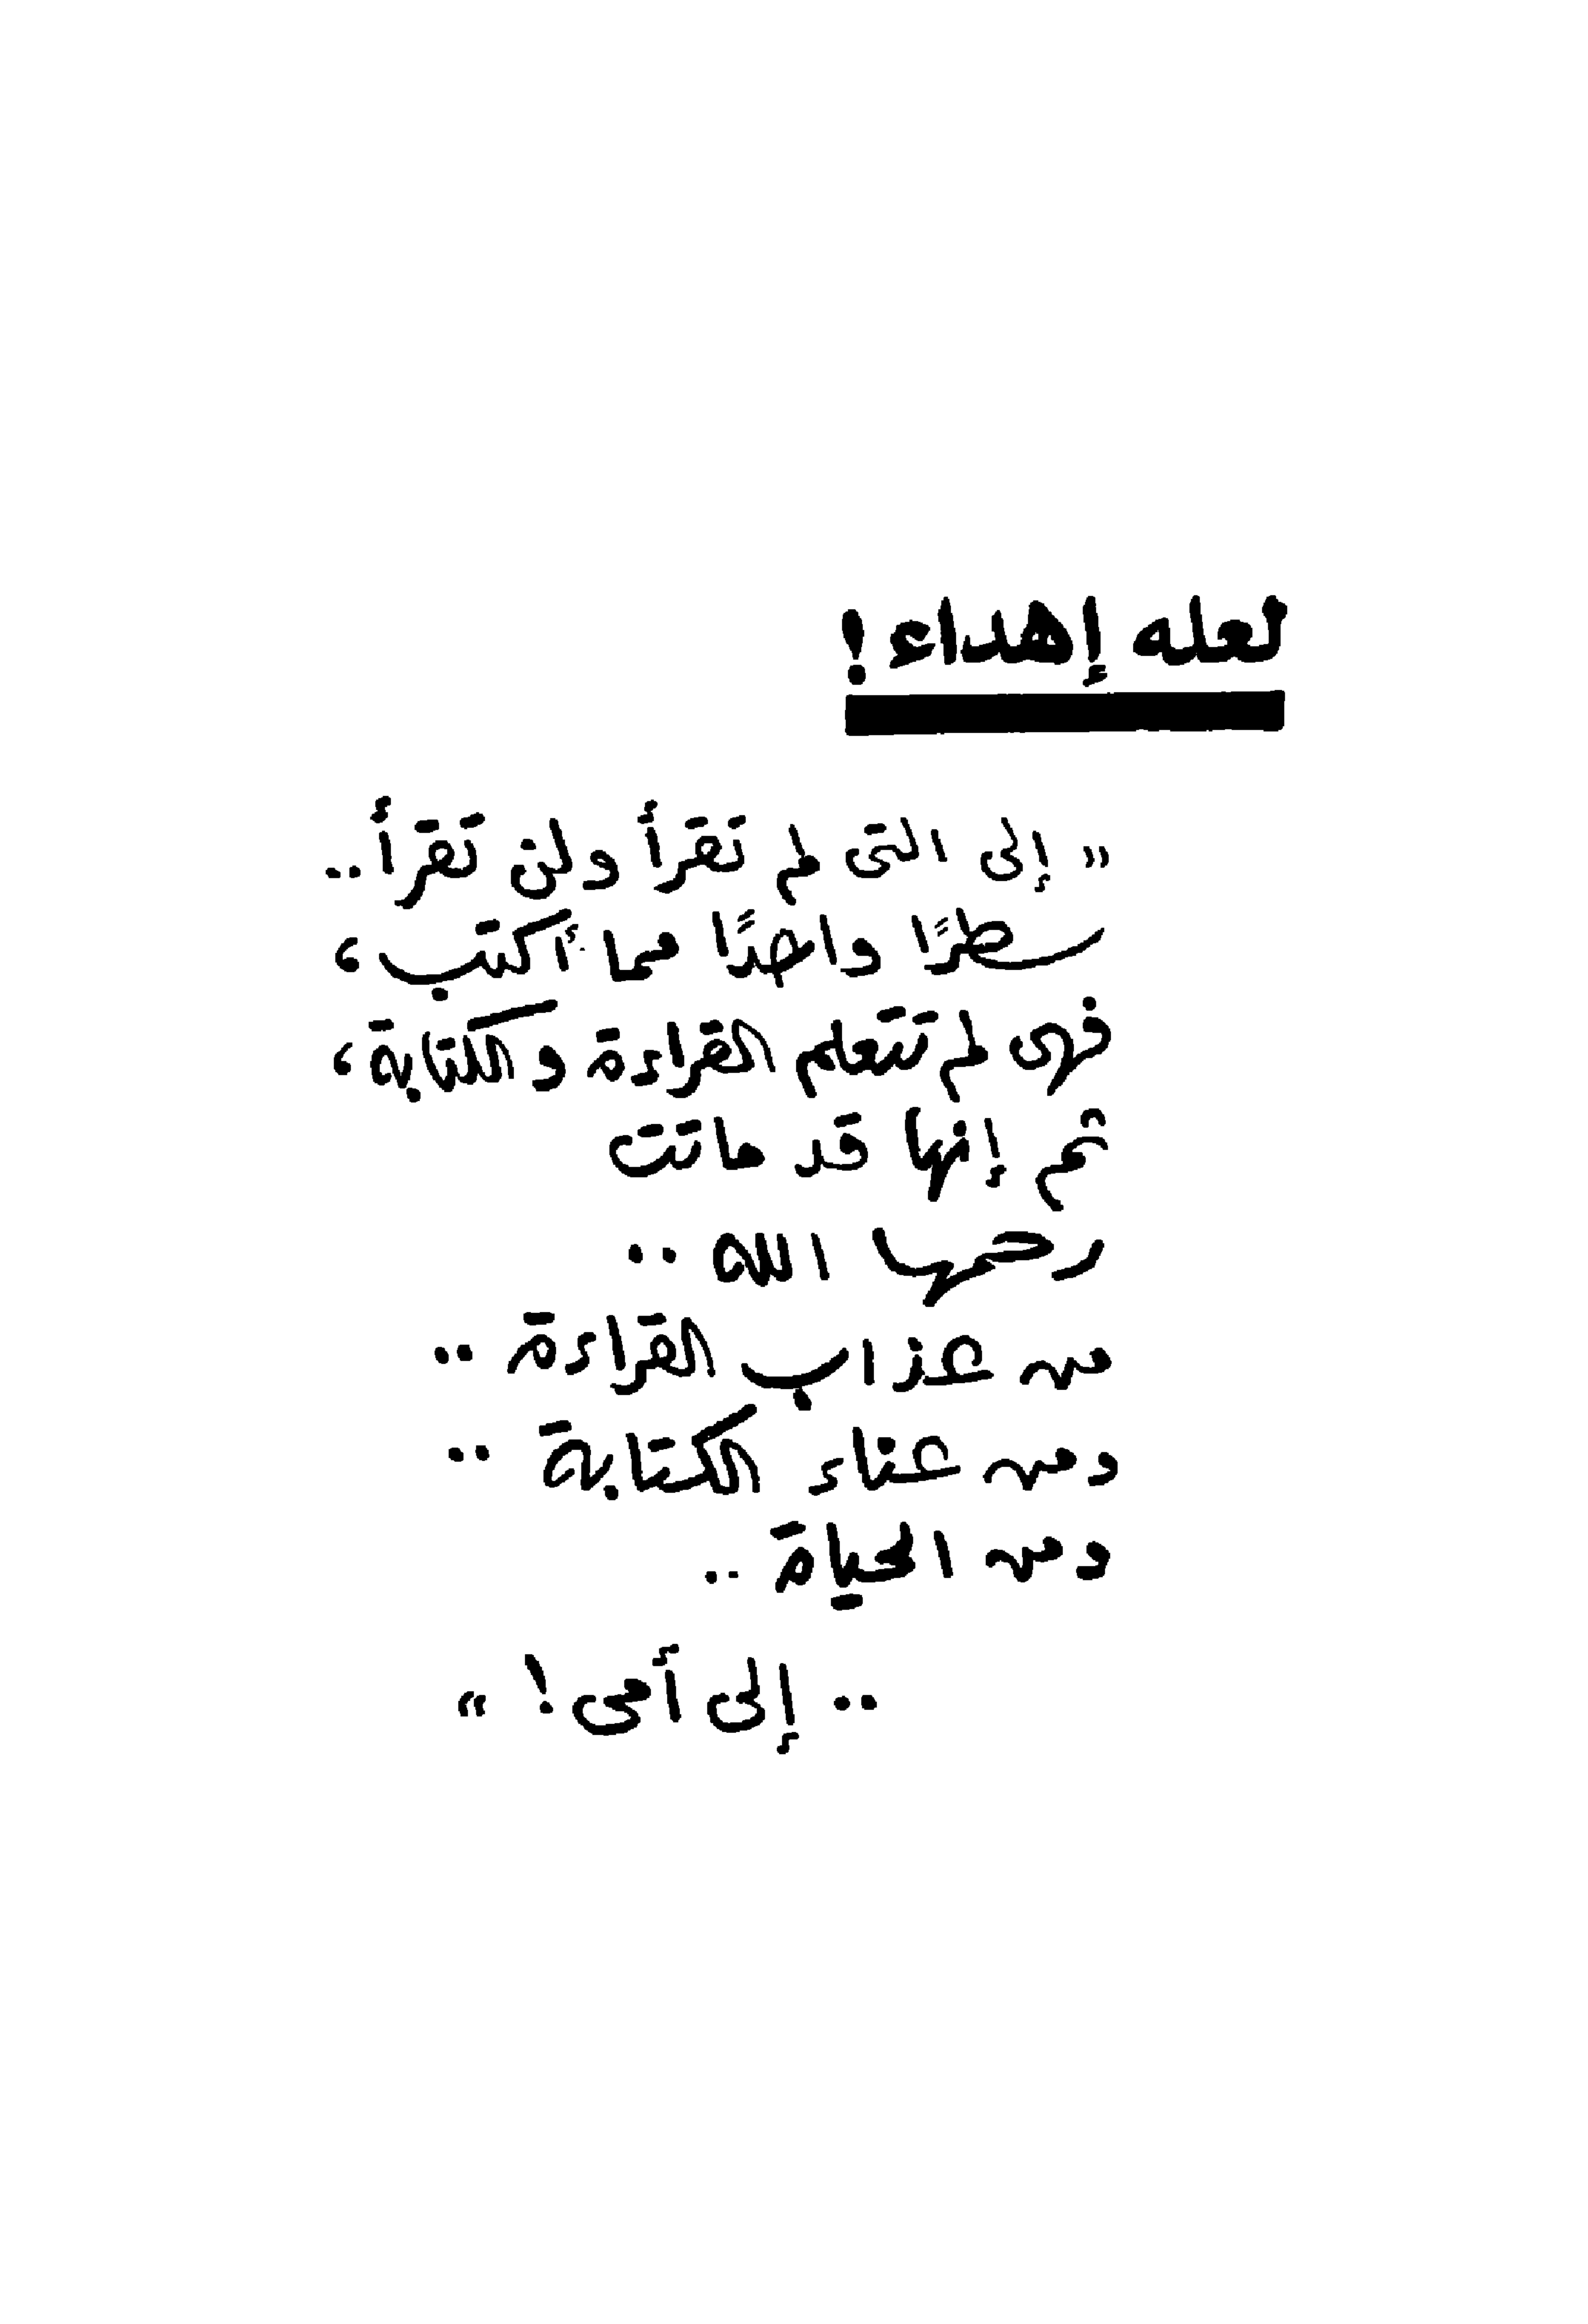 لعله إهداء !
« إلى التى لم تقرأ ولن تقرأ ..
سطرًا واحدًا مما أكتب ،
فهى لم تتعلم القراءة والكتابة ،
ثم إنها قد ماتت
رحمها الله ..
من عذاب القراءة ..
ومن عناء الكتابة ..
ومن الحياة ..
.. إلى أمى ! »